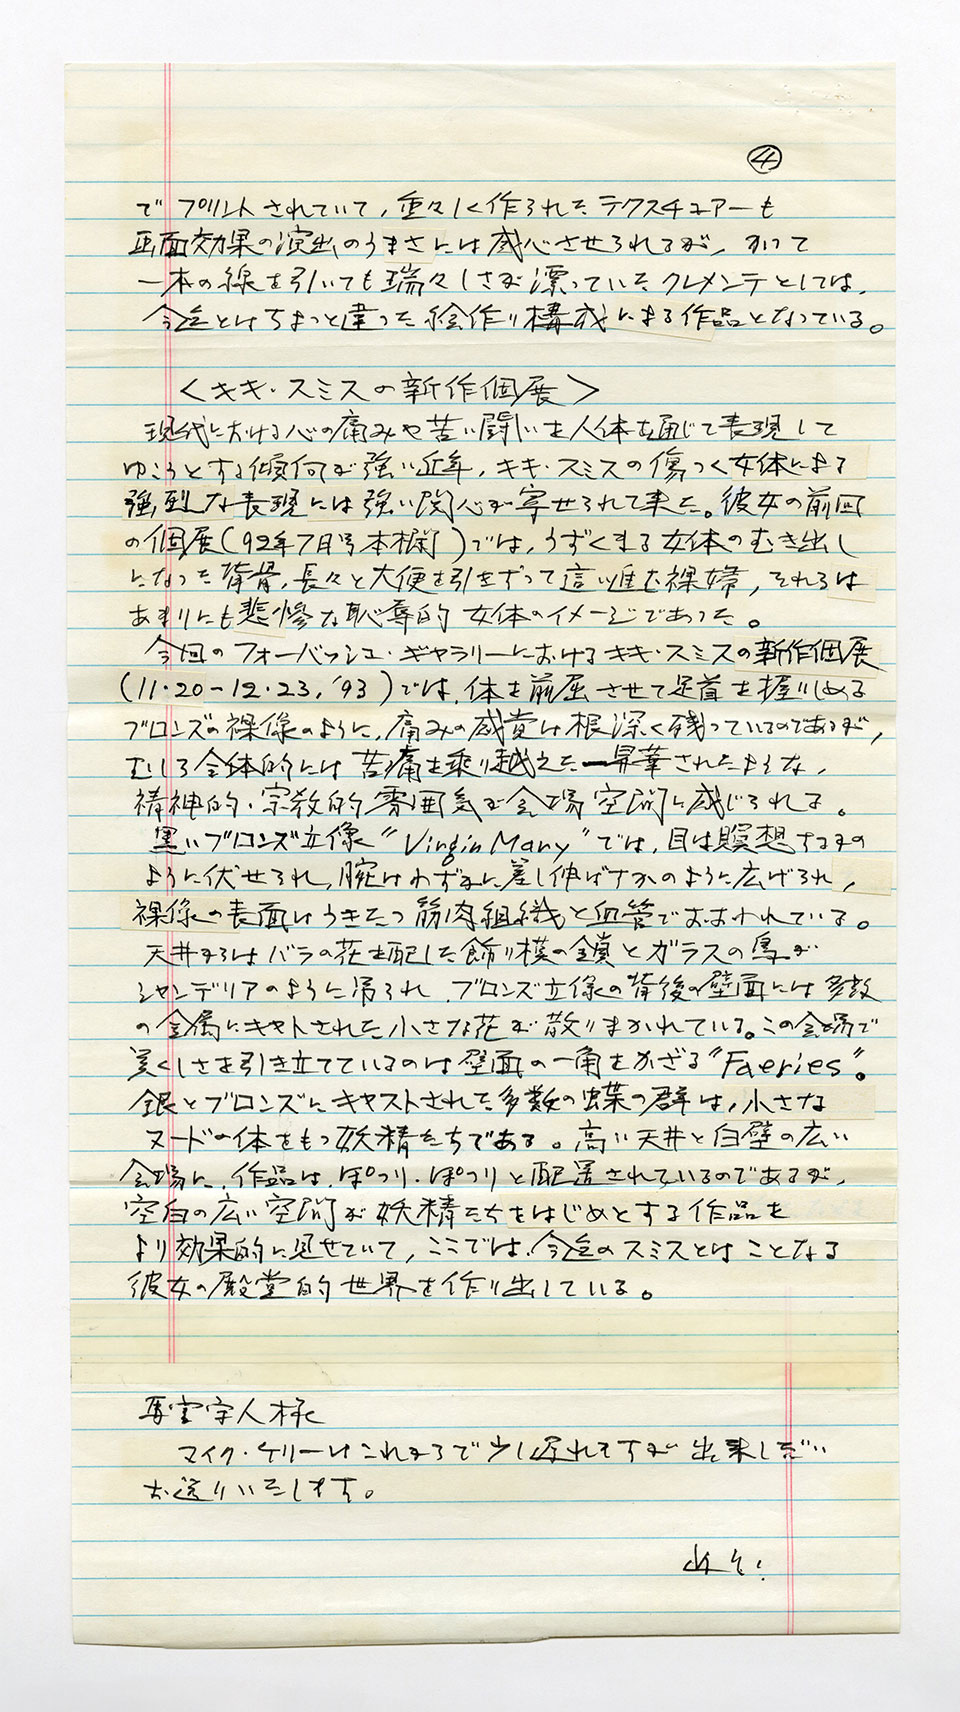 ④
でプリントされていて，重々しく作られたテクスチュアーも
画面効果の演出のうまさには感心させられるが，かつて
一本の線を引いても瑞々しさが漂っていたクレメンテとしては，
今迄とはちょっと違った絵作り構成による作品となっている。
＜キキ・スミスの新作個展＞
現代における心の痛みや苦い闘いを人体を通じて表現して
ゆこうとする傾向が強い近年，キキ・スミスの傷つく女体による
強烈な表現には強い関心が寄せられて来た。彼女の前回
の個展(92年7月号本欄)では，うずくまる女体のむき出し
になった背骨，長々と大便を引きずって這い進む裸婦，それらは
あまりにも悲惨な恥辱的女体のイメージであった。
今回のフォーバッシュ・ギャラリーにおけるキキ・スミスの新作個展
(11・20-12・23,'93)では，体を前屈させて足首を握りしめる
ブロンズの裸像のように，痛みの感覚は根深く残っているのであるが，
むしろ全体的には苦痛を乗り越えた一昇華されたような，
精神的・宗教的雰囲気が会場空間に感じられる。
黒いブロンズ立像"Virgin Mary"では，目は瞑想するかの
ように伏せられ，腕はわずかに差し伸ばすかのように広げられ，
裸像の表面はうきたつ筋肉組織と血管でおおわれている。
天井からはバラの花を配した飾り模の鎖とガラスの鳥が
シャンデリアのように吊られ，ブロンズ立像の背後の壁面には多数
の金属にキャトされた小さな花が散りまかれている。この会場で
美くしさを引き立てているのは壁面の一角をかざる"Faeries"。
銀とブロンズにキャストされた多数の蝶の群は，小さな
ヌードの体をもつ妖精たちである。高い天井と白壁の広い
会場に，作品は，ぽつり・ぽつりと配置されているのであるが，
空白の広い空間が妖精たちをはじめとする作品を
より効果的に見せていて，ここでは，今迄のスミスとはことなる
彼女の殿堂的世界を作り出している。
人様
マイク・ケリーはこれからで少し遅れますが出来しだい
お送りいたします。